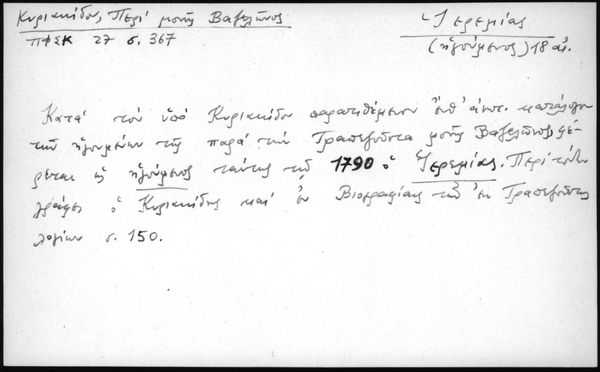 Κυριακίδου, Περί μονῆς Βαζελῶνος
ΠΦΣΚ 27 σ. 367
Ἰερεμίας
(ἡγούμενος) 18 αἰ.
Κατά τόν ὑπό Κυριακίδου παρατιθέμενον ὑπ' ἀριθ. κατάλογον
τῶν ἡγουμένων τῆς παρά τήν Τραπεζοῦντα μονῆς Βαζελῶνος φέ-
ρεται ὡς ἡγούμενος ταύτης τῷ 1790 ὁ Ἱερεμίας. Περί τούτου
γράφει ὁ Κυριακίδης καί ἐν Βιογραφίαις τῶν ἐκ Τραπεζοῦντος
λογίων σ. 150.